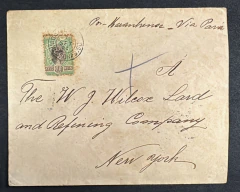 Per Maranhense - Via Pará
A
The W. J. Wilcox Lard
and Refining Company
New York